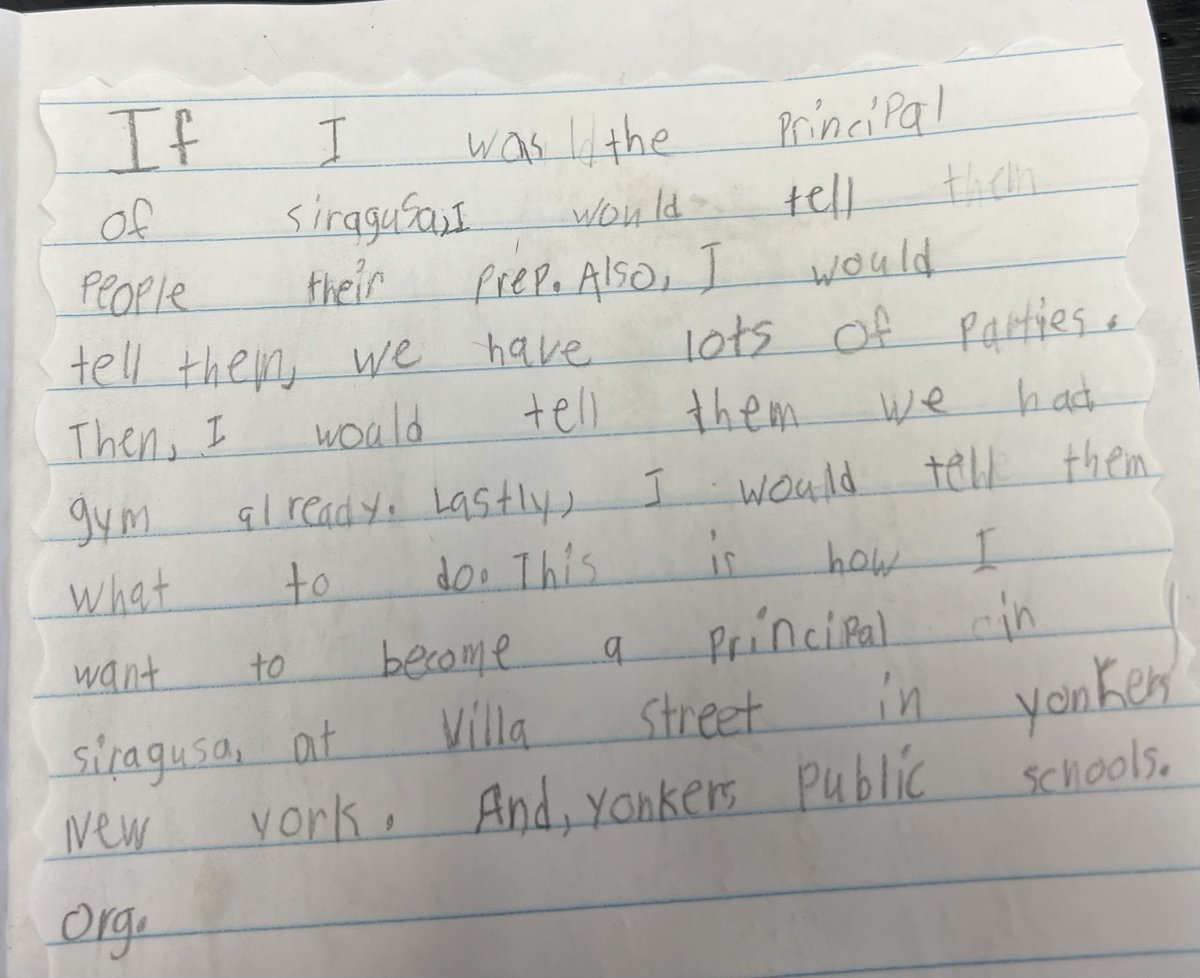 If I was the principal
of siragusa, I would tell
People their prep. Also, I would
tell them, we have lots of parties.
Then, I would tell them we had
gym already. Lastly, I would tell them
what to do. This is how I
want to become a principal in
siragusa, at Villa street in yonkers
New york. And, yonkers public schools.
org.